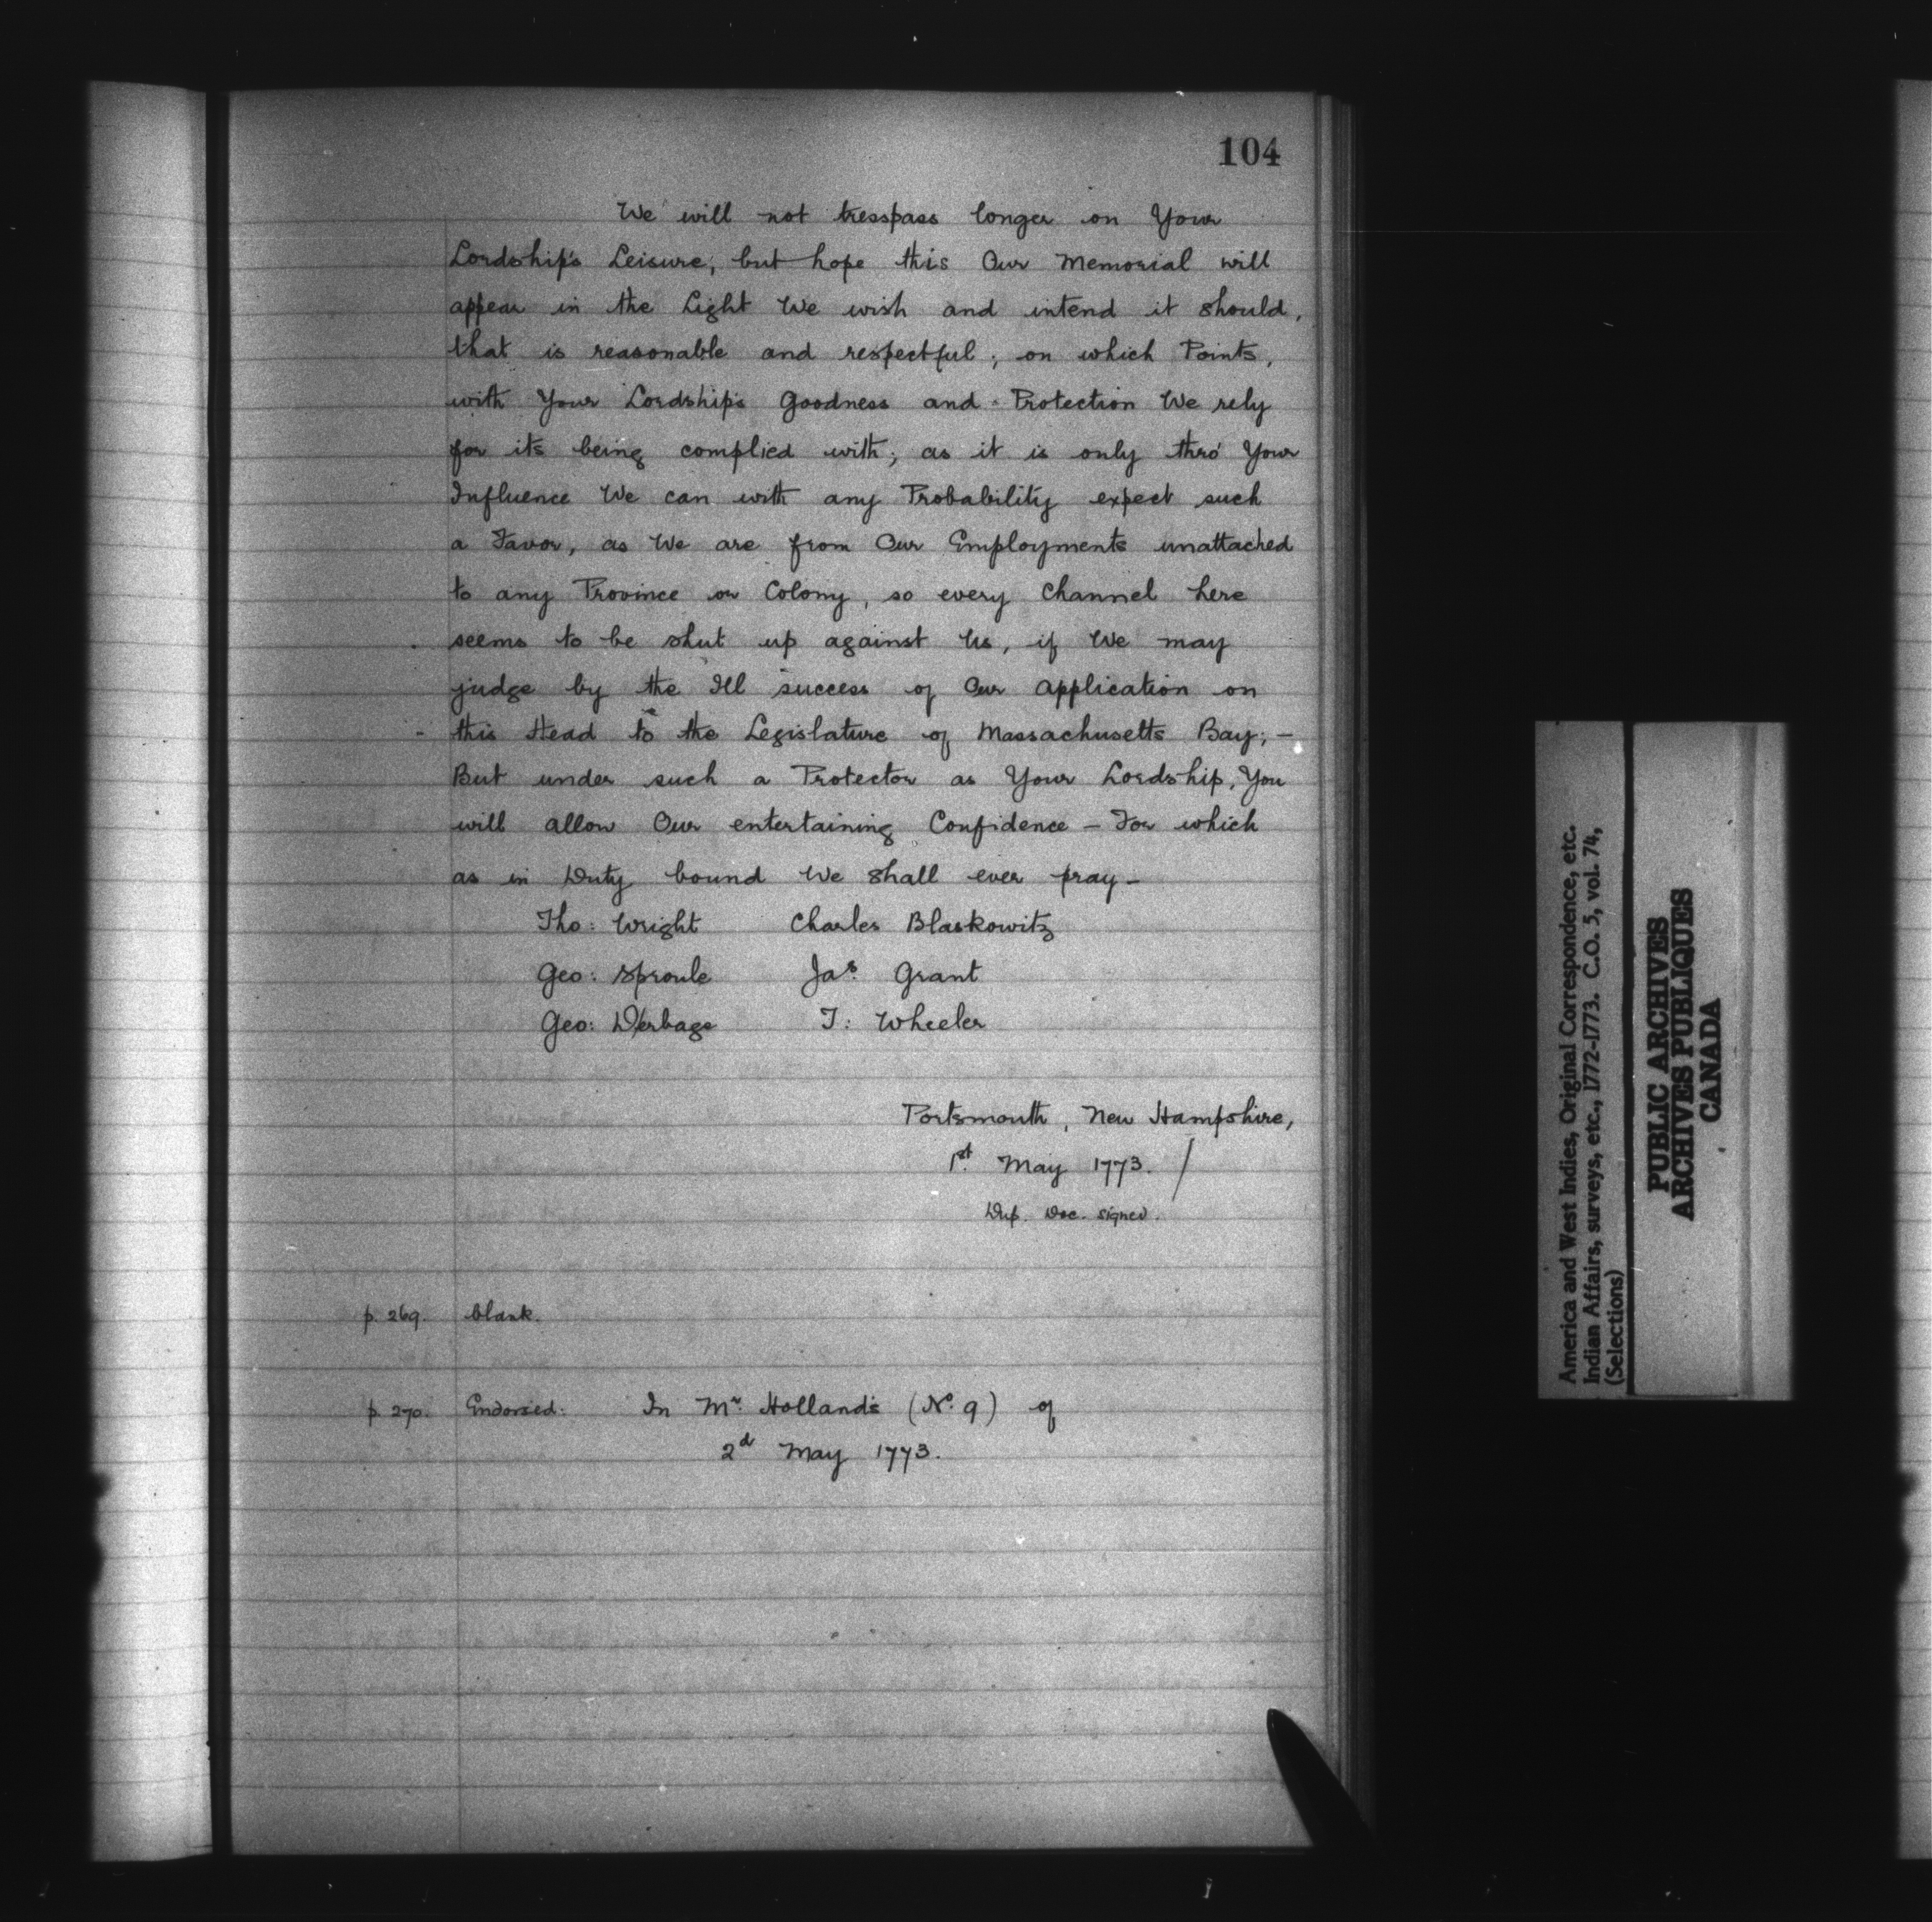 104
We will not tresspass longer on Your
Lordship's Leisure, but hope this Our Memorial will
appear in the Light We wish and intend it should,
that is reasonable and respectful; on which Points,
with Your Lordship's Goodness and Protection We rely
for its being complied with; as it is only thro' Your
Influence We can with any Probability expect such
a Favor, as We are from Our Employments unattached
to any Province or Colony, so every Channel here
seems to be shut up against Us, if We may
judge by the Ill success of Our Application on
this Head to the Legislature of Massachusetts Bay; —
But under such a Protector as Your Lordship, You
will allow Our entertaining Confidence — For which
as in Duty bound We shall ever pray —
Tho: Wright Charles Blaskowitz
Geo: Sproule Jas. Grant
Geo: T: Wheeler
Portsmouth, New Hampshire,
1st May 1773. /
Dup. Doc. signed.
p. 269. blank.
p. 270. Endorsed: In Mr. Holland's (No. 9) of
2d May 1773.
America and West Indies, Original Correspondence, etc.
Indian Affairs, surveys, etc., 1772-1773. C.O. 5, vol. 74,
(Selections)
PUBLIC ARCHIVES
ARCHIVES PUBLIQUES
CANADA